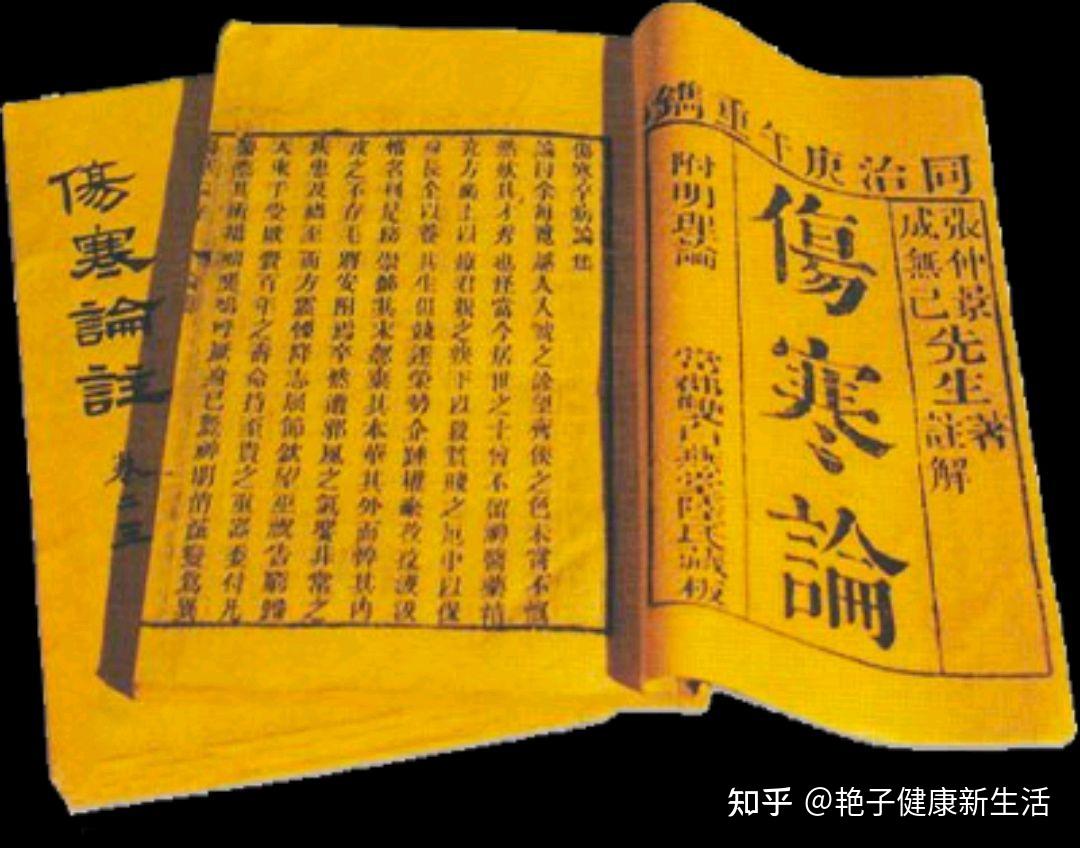 同治庚午重鐫
張仲景先生著
成無己先生註解
傷寒論
附明理論
常郡雙白燕堂陸氏藏板
傷寒卒病論集
論曰余每覽越人入虢之診望齊侯之色未嘗不慨
然歎其才秀也怪當今居世之士曾不留神醫藥精
究方術上以療君親之疾下以救貧賤之厄中以保
身長全以養其生但競逐榮勢企踵權豪孜孜汲汲
惟名利是務崇飾其末忽棄其本華其外而悴其內
皮之不存毛將安附焉卒然遭邪風之氣嬰非常之
疾患及禍至而方震慄降志屈節欽望巫祝告窮歸
天束手受敗賫百年之壽命持至貴之重器委付凡
醫恣其所措咄嗟嗚呼厥身已斃神明消滅變為異
傷寒論註
卷二三
知乎 @艳子健康新生活